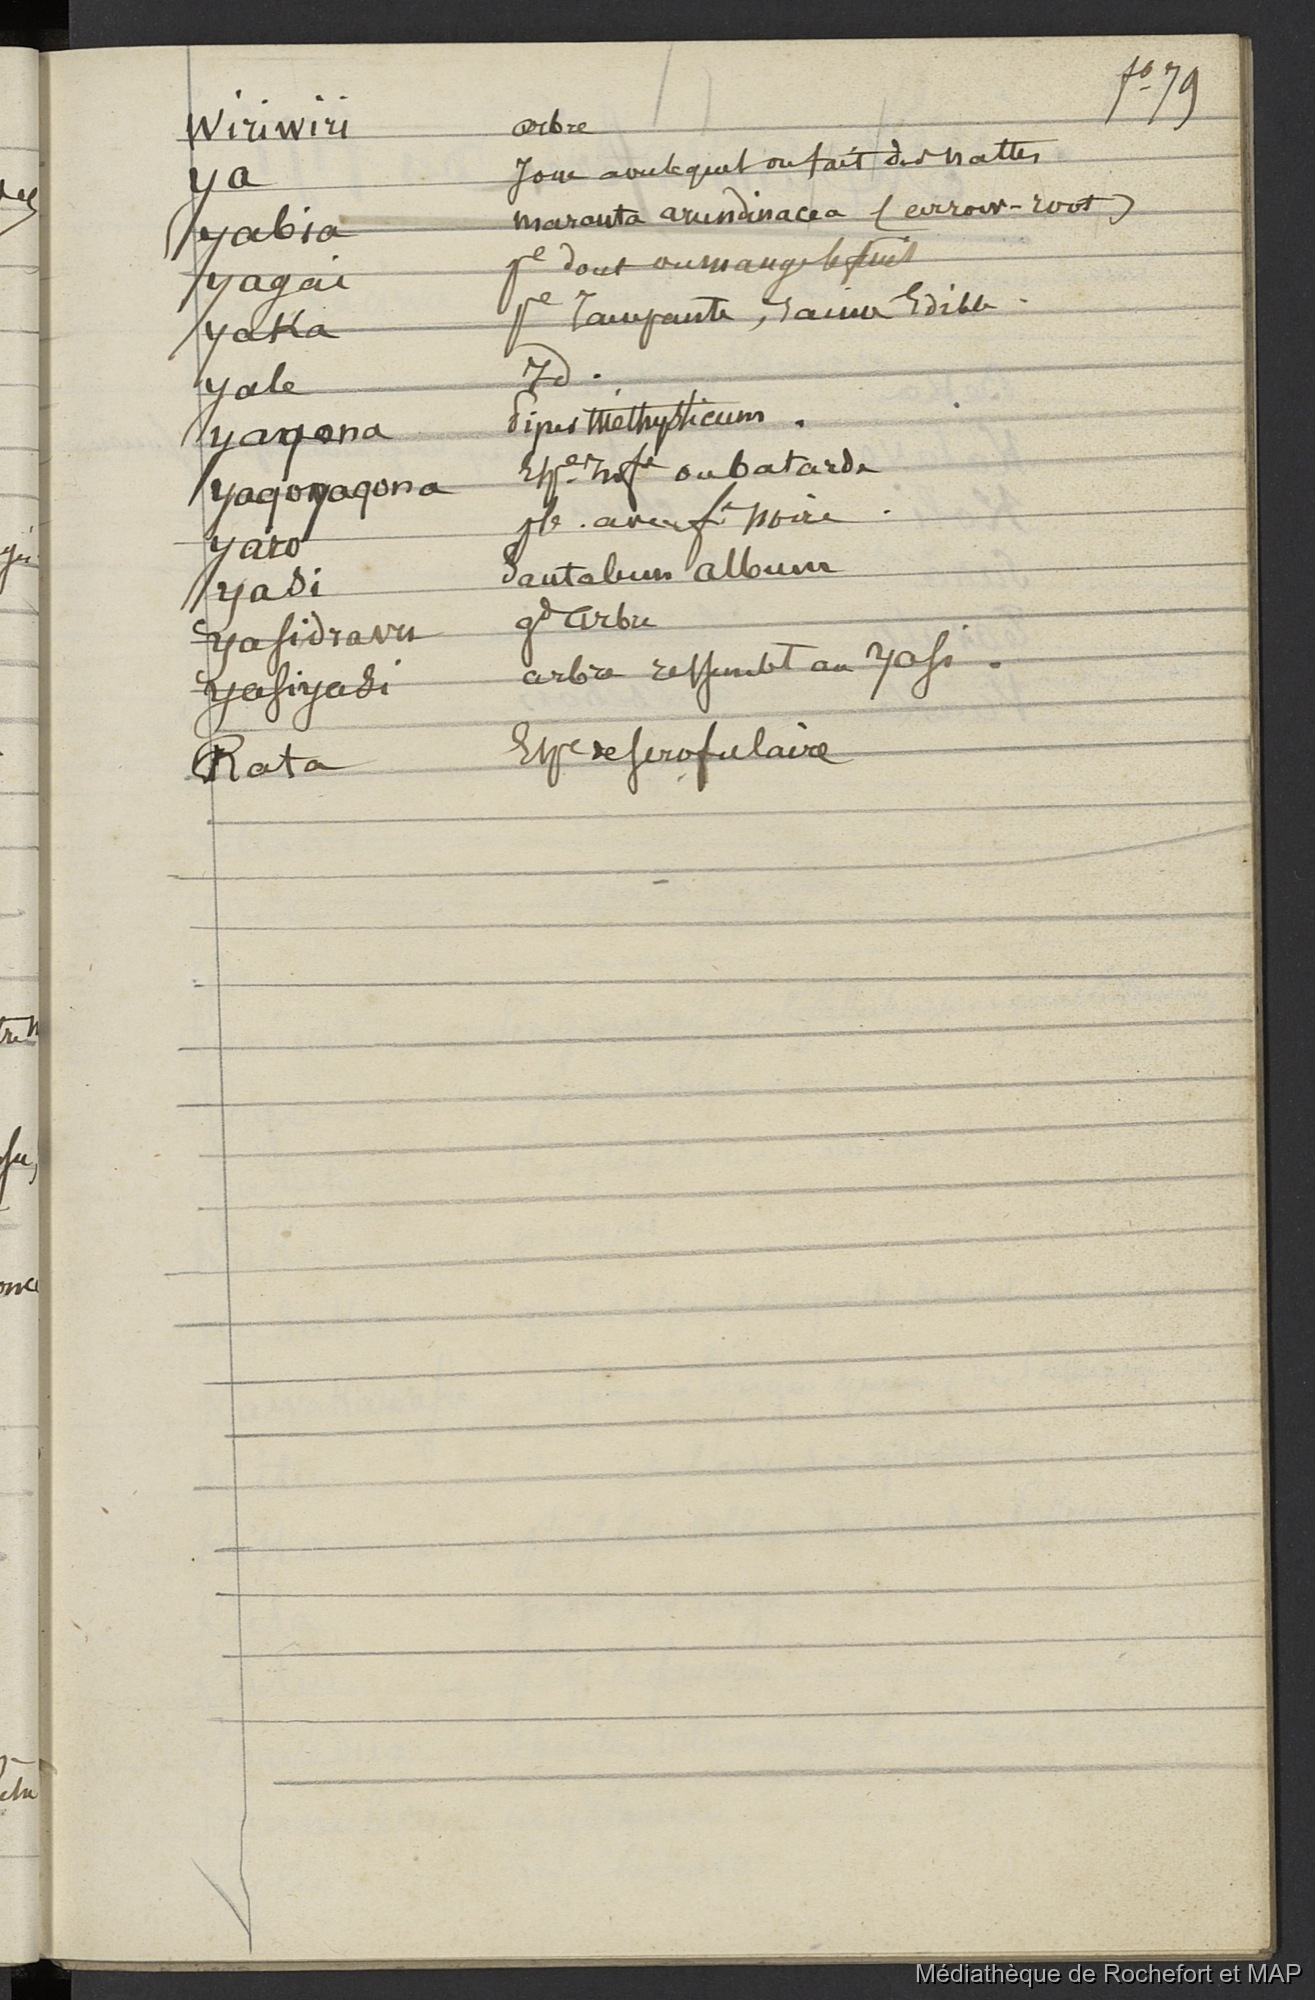 fo 79
Wiriwiri arbre
ya Jonc avec lequel on fait des nattes
yabia maranta arundinacea (arrow-root)
yagai pe dont on mange le fruit
yaka pe rampante, racine Edible
yale Id.
yaqona Piper Methysticum.
yaqoyaqona Espe infe ou batarde
yaro ple. avec fr noire.
yasi Santalum album
yasidravu gd arbre
yasiyasi arbre ressemblt au yasi.
Rata Espe de scrofulaire
Médiathèque de Rochefort et MAP